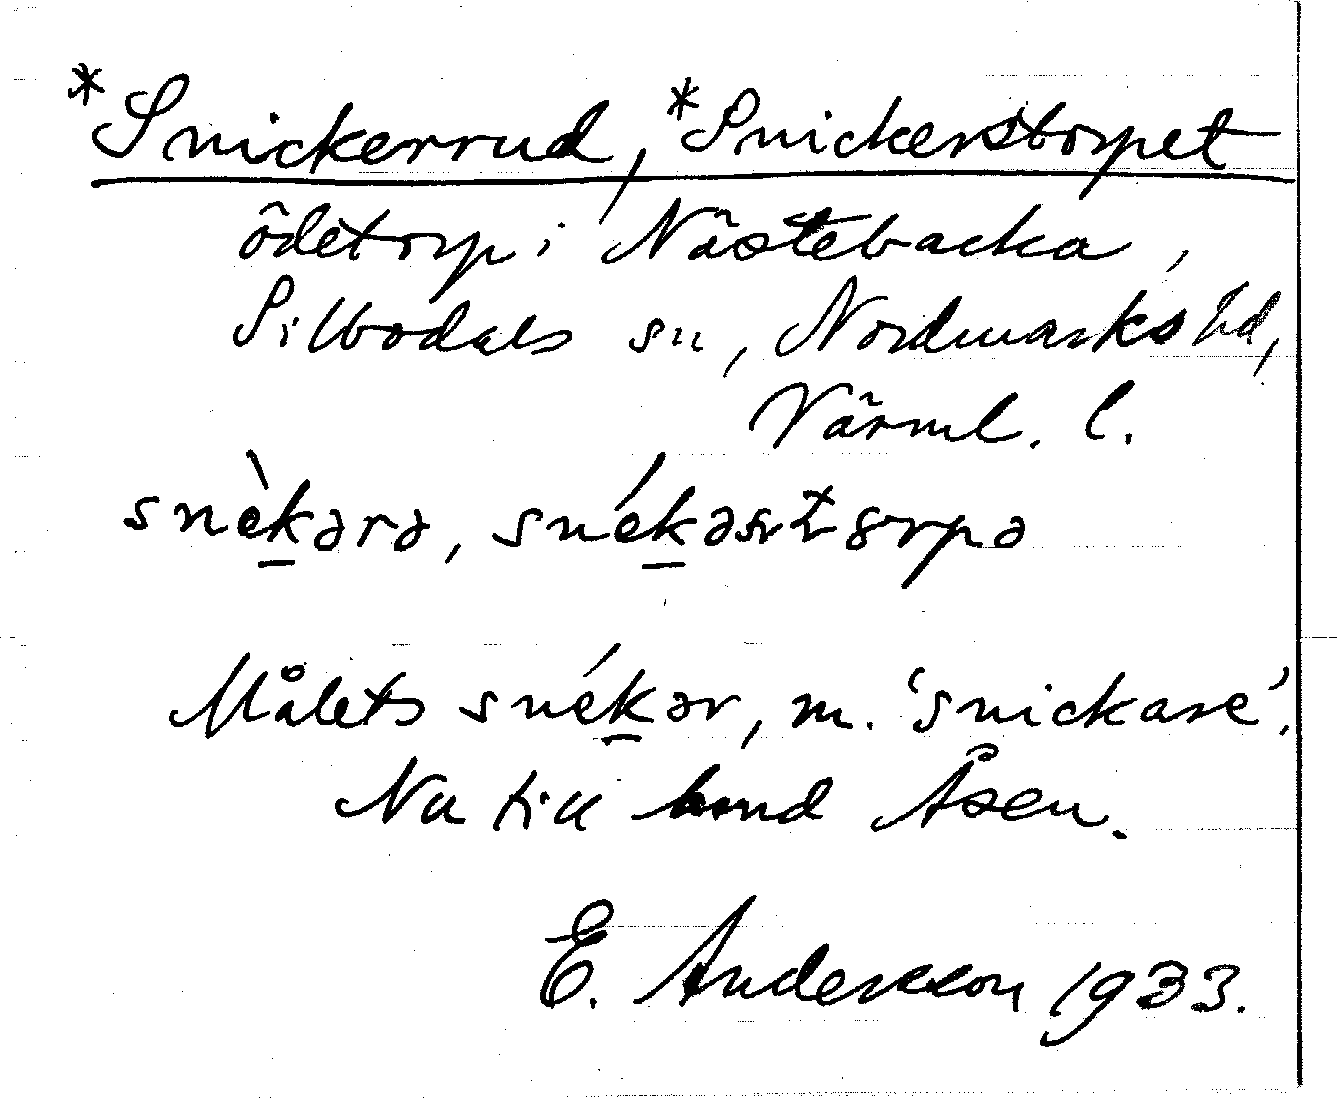 *Snickerrud, *Snickerstorpet
ödetorp i Nästebacka,
Silbodals sn, Nordmarks hd,
Värml. l.
snèkərə,
Målets snékər, m. 'snickare'.
Nu till Åsen.
E. Andersson 1933.